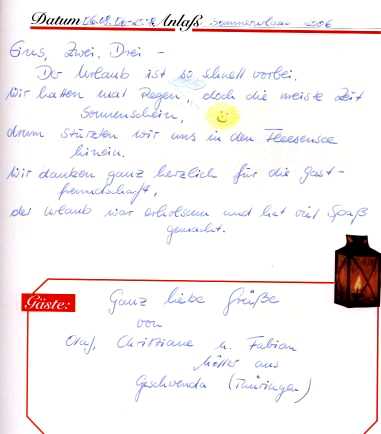 Datum Anlaß Sommerurlaub
Eins, Zwei, Drei -
Der Urlaub ist so schnell vorbei.
Wir hatten mal Regen, doch die meiste Zeit
Sonnenschein,
drum stürzten wir uns in den Fleesensee
hinein.
Wir danken ganz herzlich für die Gast-
freundschaft,
der Urlaub war erholsam und hat viel Spaß
gemacht.
Gäste:
Ganz liebe Grüße
von
Olaf, Christiane u. Fabian
aus
Geschwenda (Thüringen)